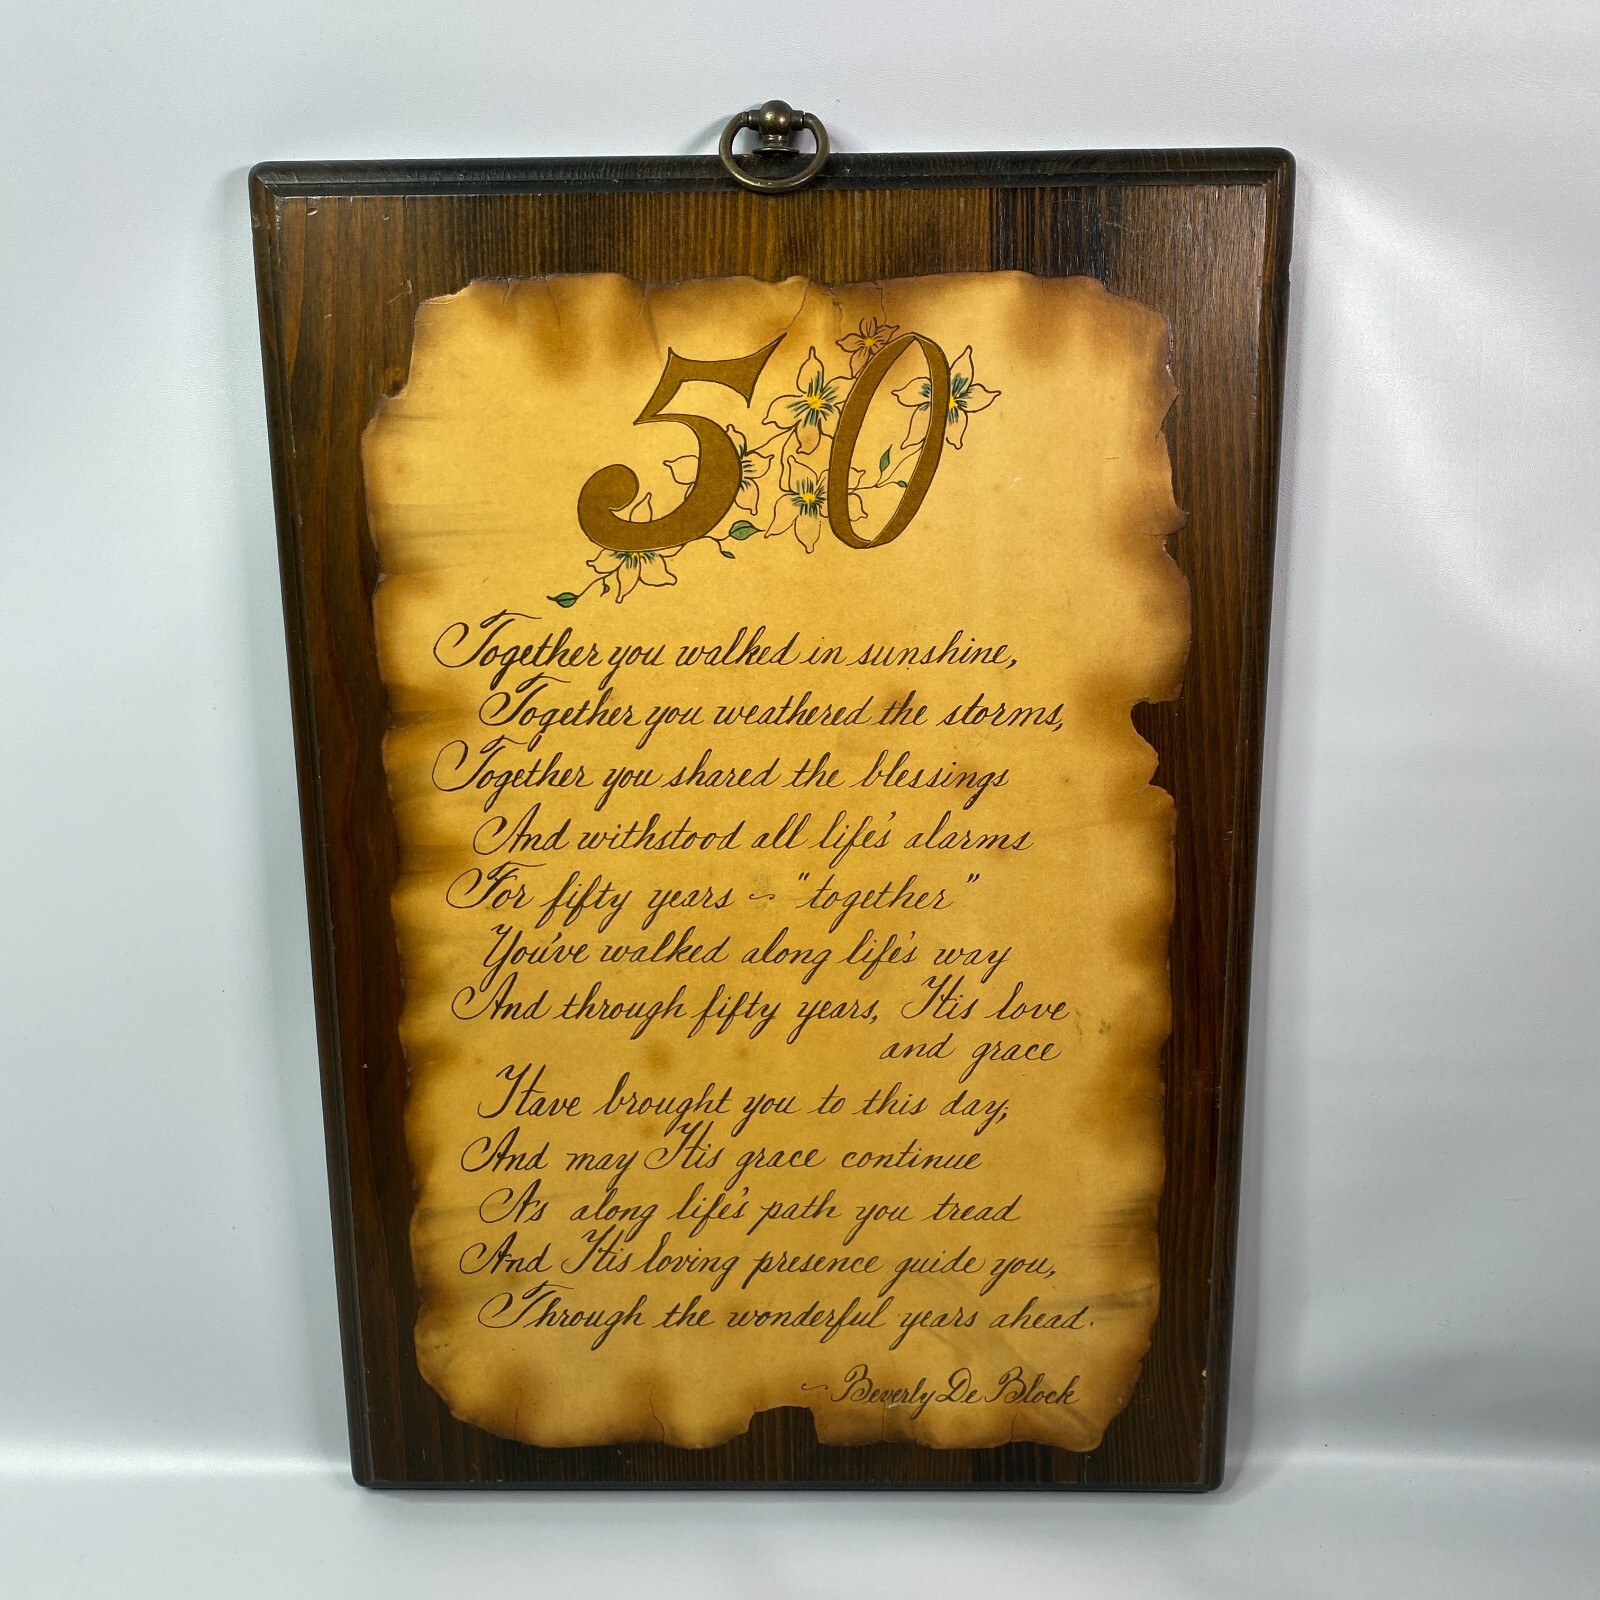 50
Together you walked in sunshine,
Together you weathered the storms,
Together you shared the blessings
And withstood all life's alarms
For fifty years ~ "together"
You've walked along life's way
And through fifty years, His love
and grace
Have brought you to this day;
And may His grace continue
As along life's path you tread
And His loving presence guide you,
Through the wonderful years ahead.
~Beverly De Block